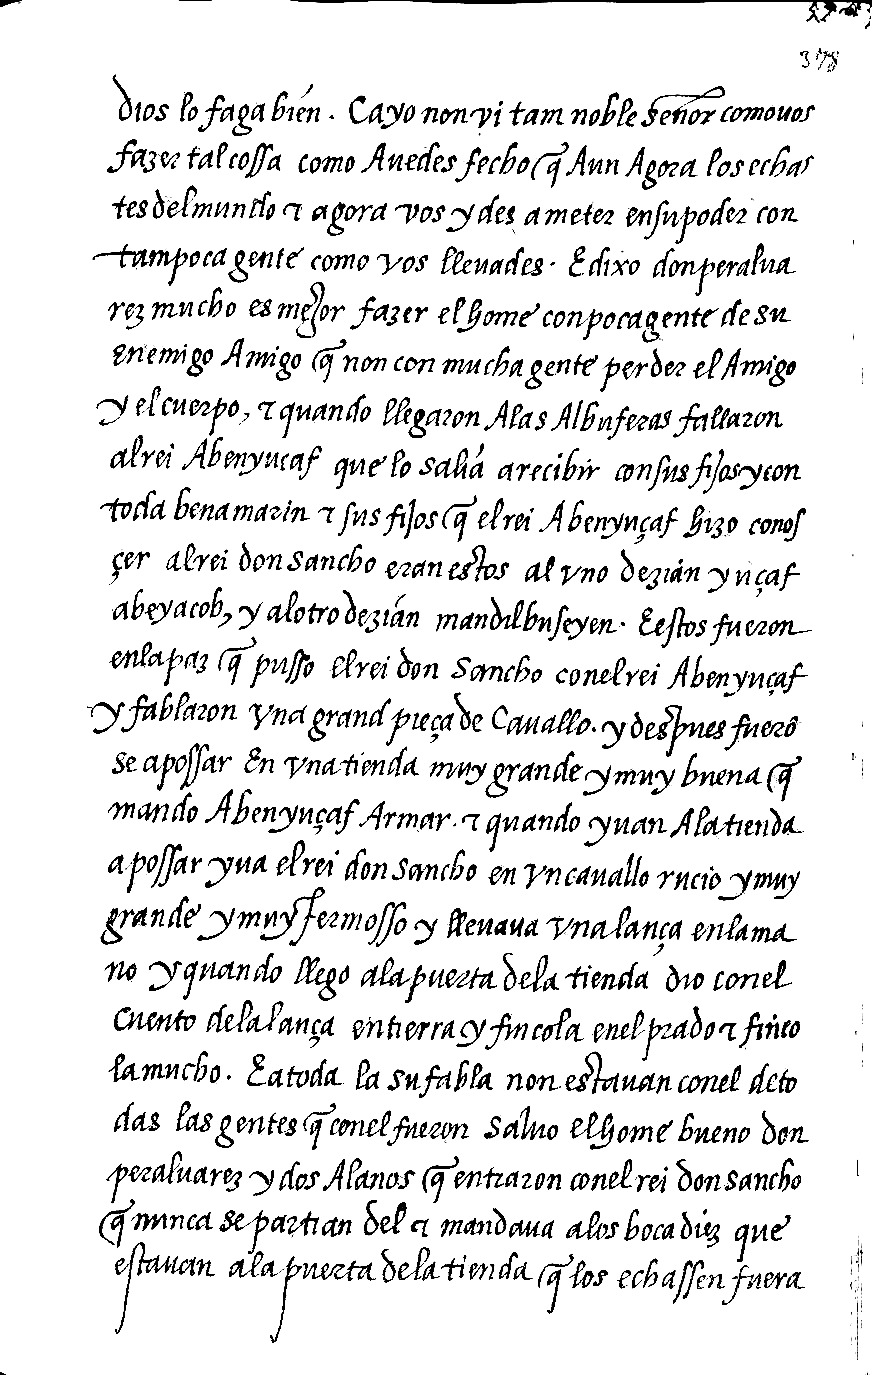 378
dios lo faga bién. Ca yo non vi tam noble señor como uos
fazer tal cossa como Auedes fecho q̃ Aun Agora los echas
tes del mundo τ agora vos ydes a meter en su poder con
tam poca gente como vos lleuades. E dixo don peralua
rez mucho es mejor fazer el home con poca gente de su
enemigo Amigo q̃ non con mucha gente perder el Amigo
y el cuerpo, τ quando llegaron A las Albuferas fallaron
al rei Abenyuçaf que lo salia a recibir con sus fijos y con
toda benamarin τ sus fijos q̃ el rei Abenyuçaf hizo conos
çer al rei don Sancho eran estos al vno dezián yuçaf
abeyacob, y al otro dezián mandilbuseyen. E estos fueron
en la paz q̃ pusso el rei don Sancho con el rei Abenyuçaf
y fablaron vna grand pieça de Cauallo. y despues fuerõ
se a possar En vna tienda muy grande y muy buena q̃
mando Abenyuçaf Armar. τ quando yuan A la tienda
a possar yua el rei don Sancho en vn cauallo rucio y muy
grande y muy fermosso y lleuaua vna lança en la ma
no y quando llego a la puerta de la tienda dio con el
cuento de la lança en tierra y fincola en el prado τ finco
la mucho. E a toda la su fabla non estauan con el de to
das las gentes q̃ con el fueron Saluo el home bueno don
peraluarez y dos Alanos q̃ entraron con el rei don Sancho
q̃ nunca se partian del τ mandaua a los bocadiez que
estauan a la puerta de la tienda q̃ los echassen fuera